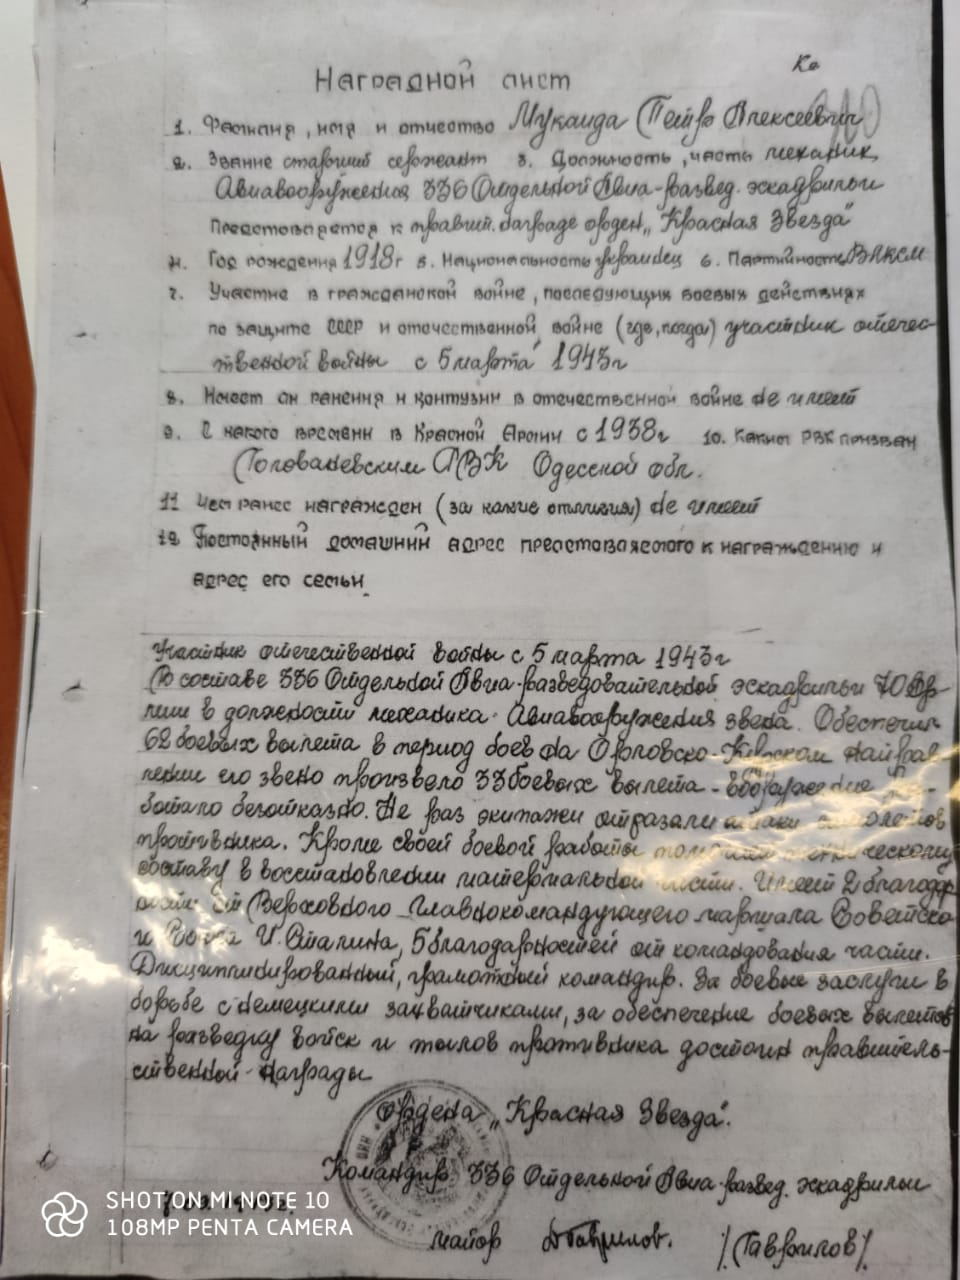 Ко
Наградной лист
1. Фамилия, имя и отчество Мукаида Петр Алексеевич
2. Звание старший сержант 3. Должность, часть механик
Авиавооружения 336 Отдельной Авиа-развед. эскадрильи
Представляется к правит. награде орден „Красная Звезда"
4. Год рождения 1918 г 5. Национальность украинец 6. Партийность ВЛКСМ
7. Участие в гражданской войне, последующих боевых действиях
по защите СССР и отечественной войне (где, когда) участник отечес-
твенной войны с 5 марта 1943 г
8. Имеет ли ранения и контузии в отечественной войне не имеет
9. С какого времени в Красной Армии с 1938 г 10. Каким РВК призван
Голованевским РВК Одесской обл.
11 Чем ранее награжден (за какие отличия) не имеет
12 Постоянный домашний адрес представляемого к награждению и
адрес его семьи.
Участник отечественной войны с 5 марта 1943 г
В составе 336 Отдельной Авиа-разведовательной эскадрильи 70
в должности механика Авиавооружения звена. Обеспечил
62 боевых вылета в период боев на Орловско-Курском направ-
лении его звено произвело 33 боевых вылета - вооружение ра-
ботало безотказно. Не раз экипажи отражали атаки самолетов
противника. Кроме своей боевой работы техническому
составу в восстановлении материальной части. Имеет 2 благодар
ности от Верховного Главнокомандующего маршала Советско
го Союза И. Сталина, 5 благодарностей от командования части.
Дисциплинированный, грамотный командир. За боевые заслуги в
борьбе с немецкими захватчиками, за обеспечение боевых вылетов
на разведку войск и тылов противника достоин правитель-
ственной награды
Ордена „Красная Звезда".
Командир 336 Отдельной Авиа-развед. эскадрильи
майор Гаврилов. /Гаврилов/
SHOT ON MI NOTE 10
108MP PENTA CAMERA